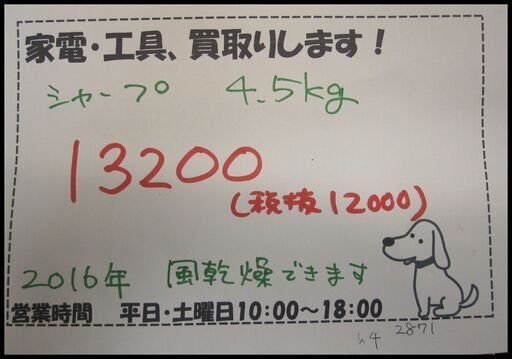 家電・工具、買取りします！
シャープ 4.5kg
13200
(税抜12000)
2016年 風乾燥できます
営業時間 平日・土曜日10:00～18:00
h4 2871